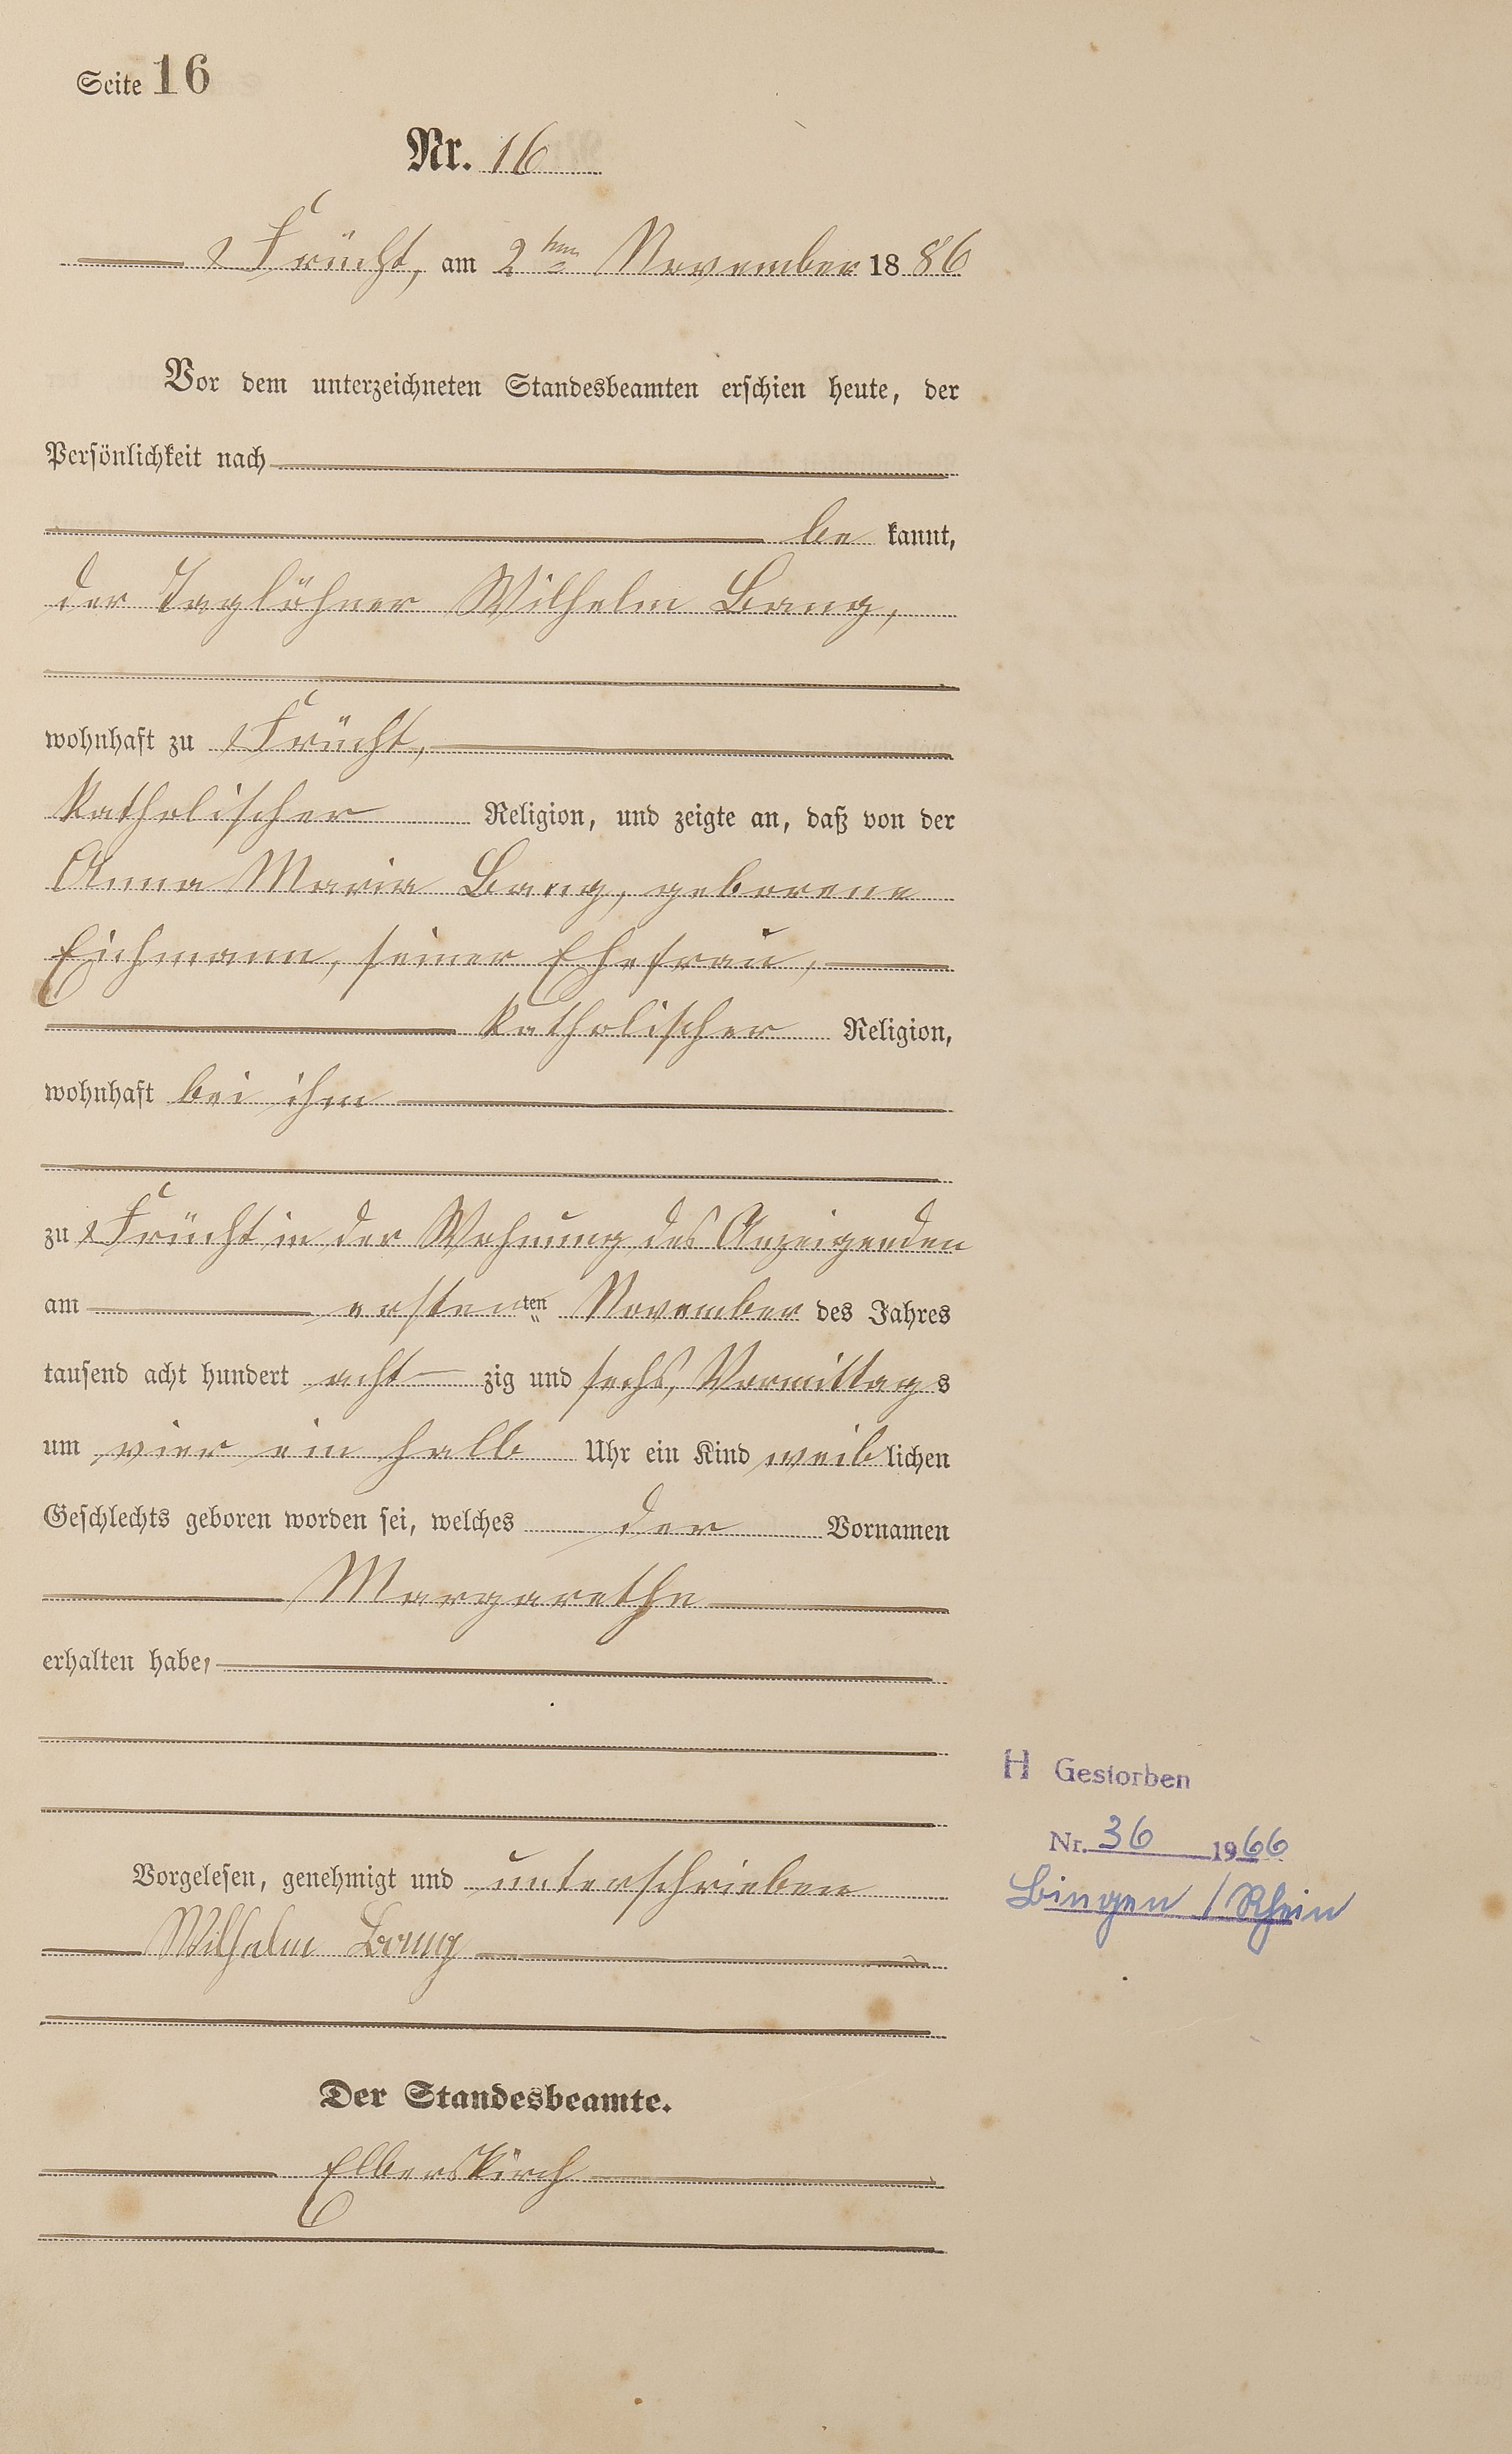 Seite 16
Nr. 16
Frücht, am 2ten November 1886
Vor dem unterzeichneten Standesbeamten erschien heute, der
Persönlichkeit nach
bekannt,
der Taglöhner Wilhelm Bang,
wohnhaft zu Frücht,
katholischer Religion, und zeigte an, daß von der
Anna Maria Bang, geborene
Eichmann, seiner Ehefrau,
katholischer Religion,
wohnhaft bei ihm
zu Frücht in der Wohnung des Anzeigenden
am erstenten November des Jahres
tausend acht hundert achtzig und sechs, Vormittags
um vier ein halb Uhr ein Kind weiblichen
Geschlechts geboren worden sei, welches der Vornamen
Margarethe
erhalten habe,
H Gestorben
Nr. 36 1966
Bingen / Rhein
Vorgelesen, genehmigt und unterschrieben
Wilhelm Bang
Der Standesbeamte.
Elberskirch